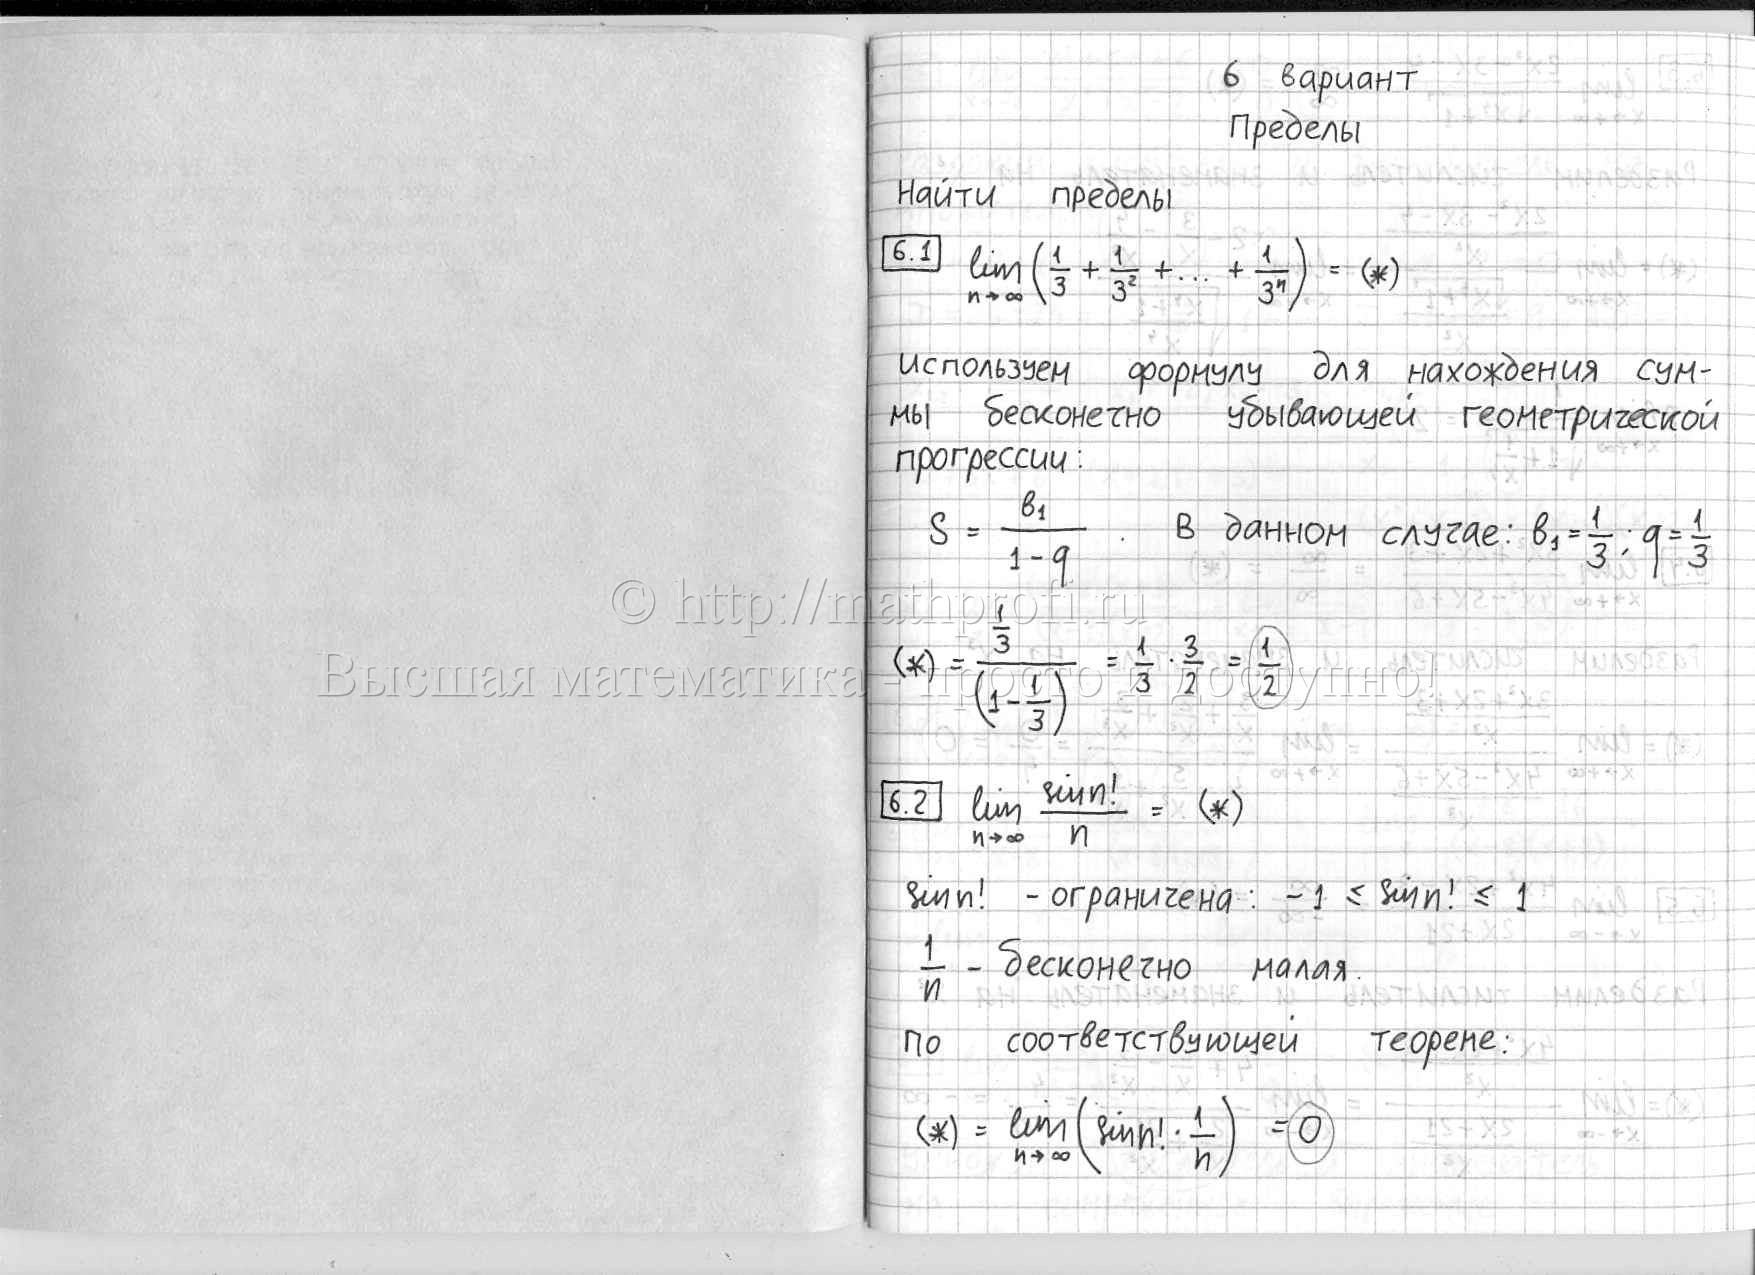 6 вариант
Пределы
Найти пределы
6.1 lim n→∞ (1/3 + 1/3² + ... + 1/3ⁿ) = (*)
Используем формулу для нахождения сум-
мы бесконечно убывающей геометрической
прогрессии:
S = b₁/(1-q) . В данном случае: b₁ = 1/3; q = 1/3
© http://mathprofi.ru
(*) = (1/3)/(1 - 1/3) = 1/3 · 3/2 = 1/2
Высшая математика - просто и доступно!
6.2 lim n→∞ sin n!/n = (*)
sin n! - ограничена: -1 ≤ sin n! ≤ 1
1/n - бесконечно малая.
По соответствующей теореме:
(*) = lim n→∞ (sin n! · 1/n) = 0